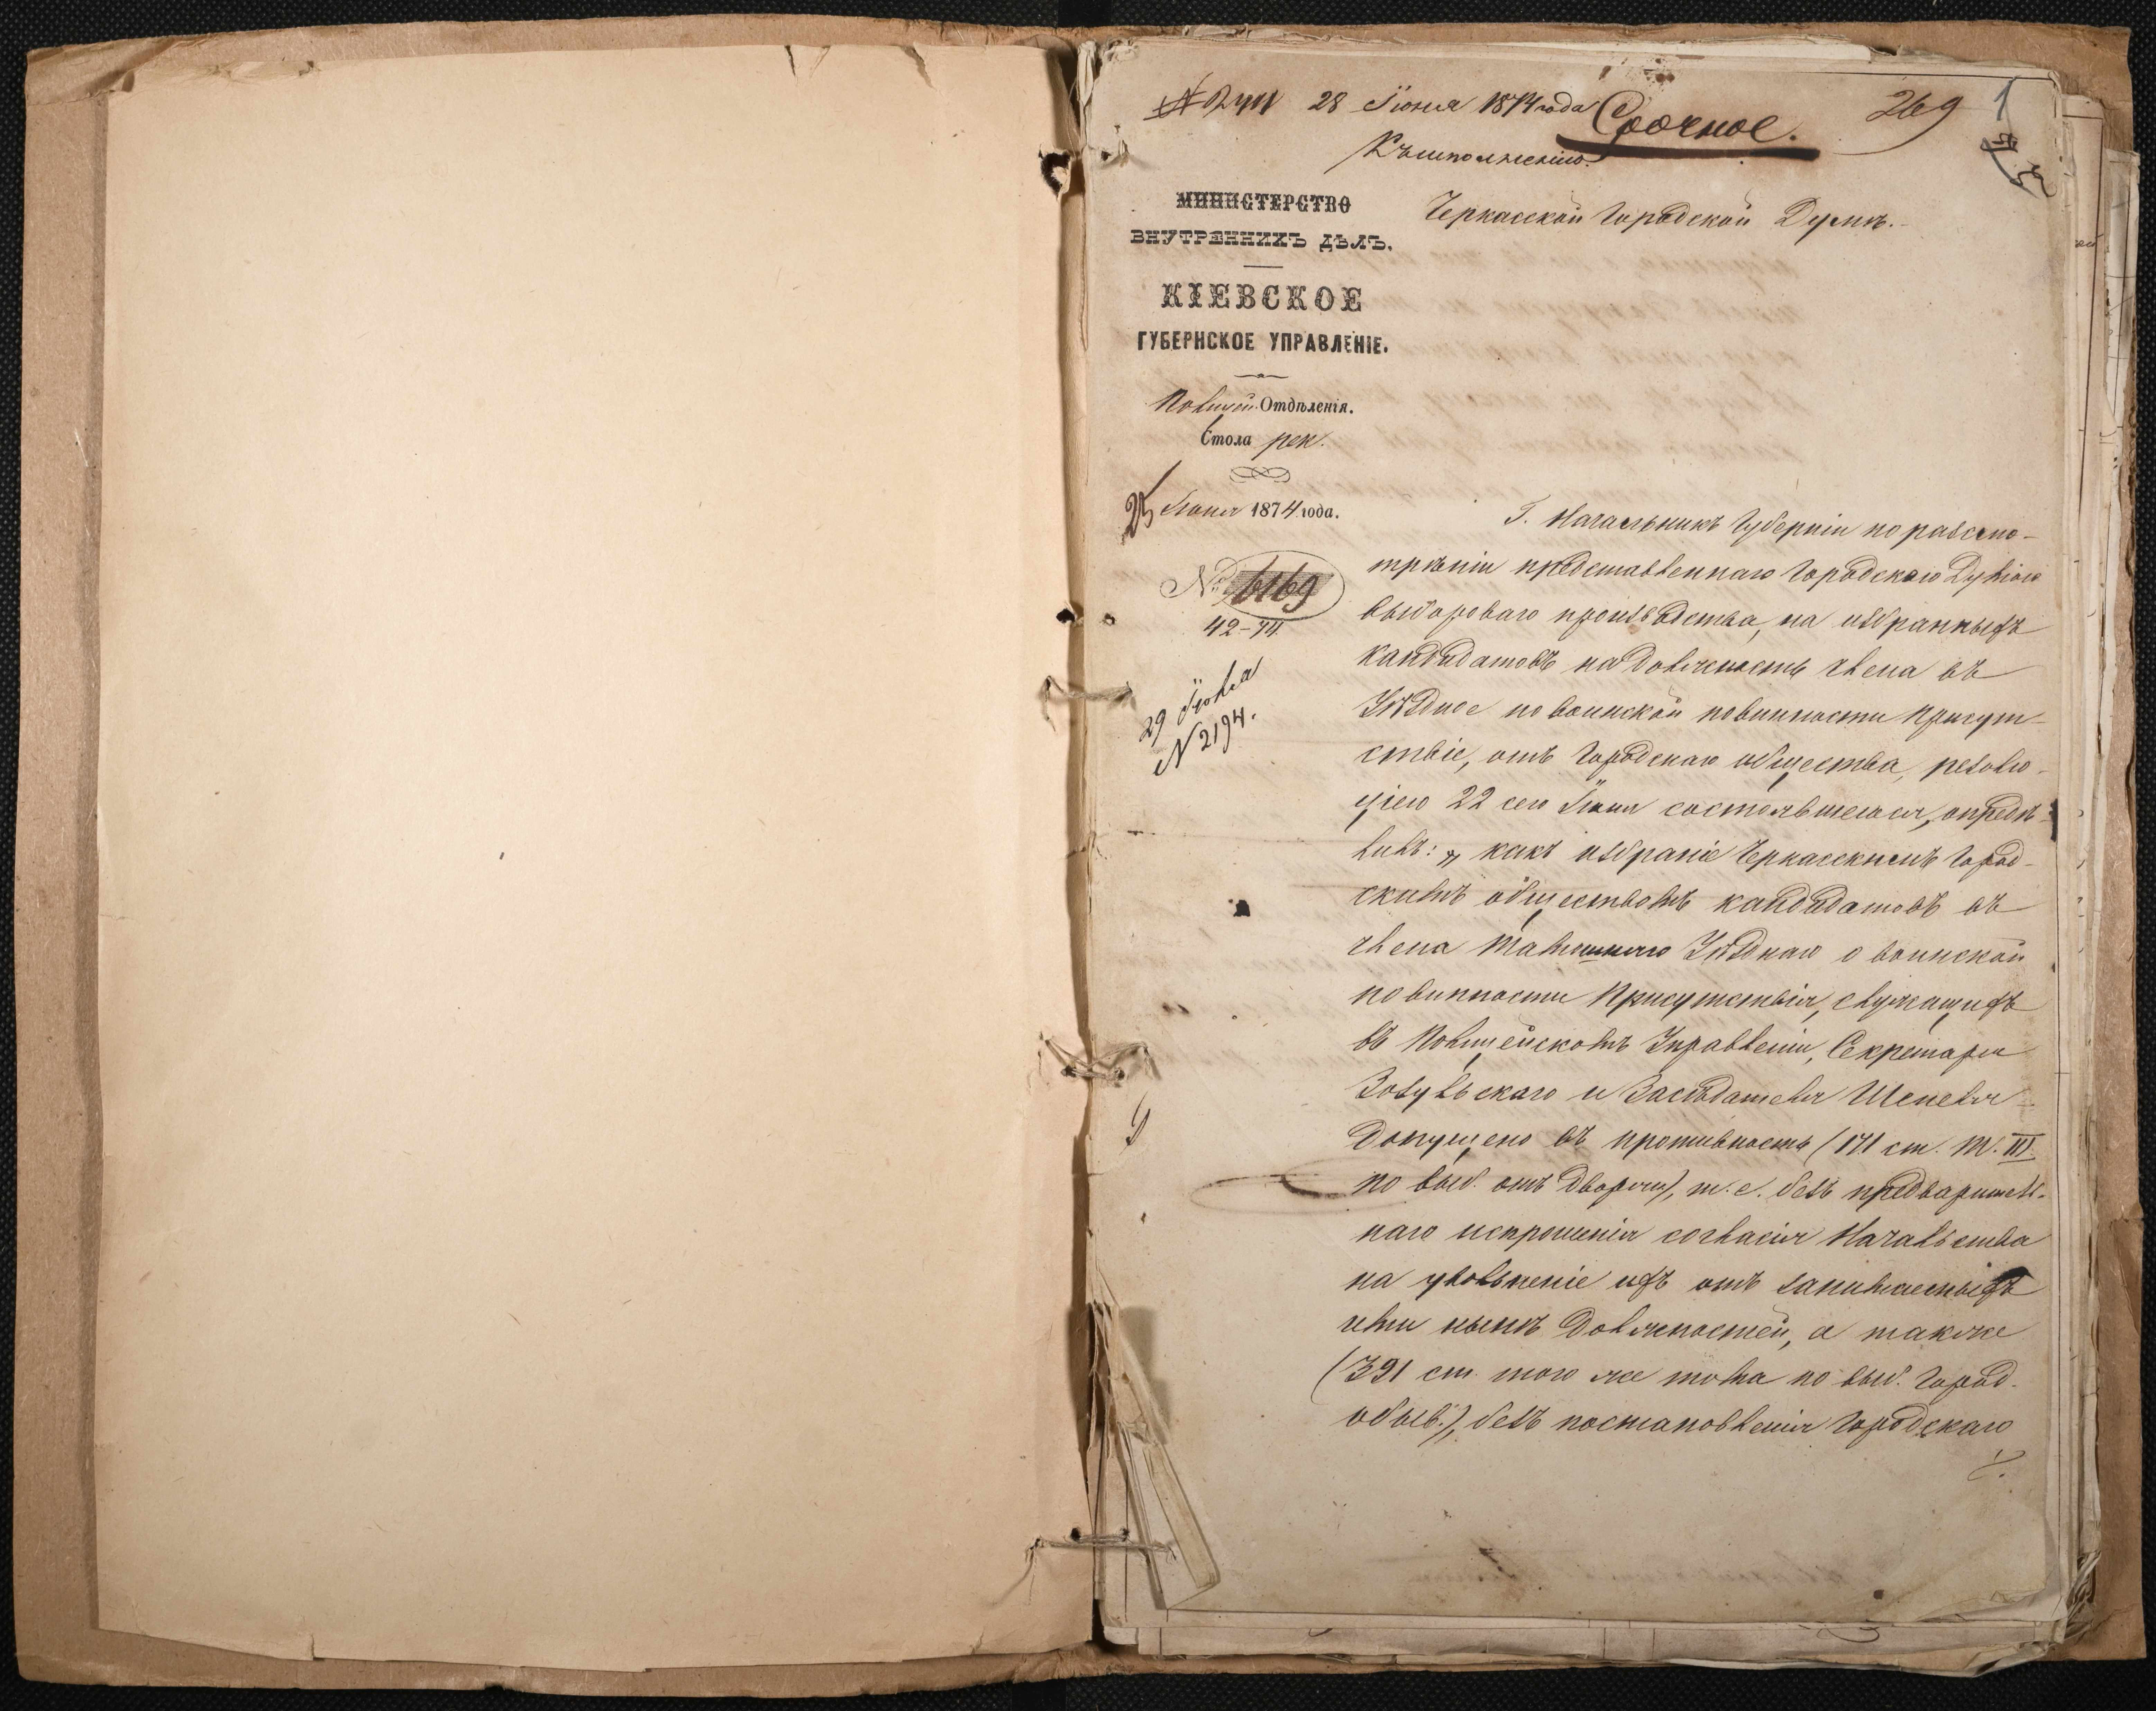 28 Іюня 1874 года Срочное. 269 1
Къ исполненію.
МИНИСТЕРСТВО
ВНУТРЕННИХЪ ДѢЛЪ.
КІЕВСКОЕ
ГУБЕРНСКОЕ УПРАВЛЕНІЕ.
Отдѣленія.
Стола рек.
25 Іюня 1874 года.
№ 6169
42-74
29 Іюля
N 2194.
Черкасской Городской Думѣ.
Г. Начальникъ Губерніи по разсмо-
трѣніи представленнаго Городскою Думою
выбороваго производства, на избранныхъ
кандидатовъ на должность члена въ
Уѣздное по воинской повинности присут-
ствіе, отъ Городскаго общества, резолю-
ціею 22 сего Іюня состоявшеюся, опредѣ-
лилъ: „какъ избраніе Черкасскимъ Город-
скимъ обществомъ кандидатовъ въ
члена тамошняго Уѣзднаго о воинской
повинности Присутствія, служащихъ
въ Полицейскомъ Управленіи, Секретаря
Зозульскаго и Засѣдателя Шепеля
допущено въ противность (171 ст. Т. III.
по выб. отъ дворян), т. е. безъ предваритель-
наго испрошенія согласія Начальства
на увольненіе ихъ отъ занимаемыхъ
ими нынѣ должностей, а также
(391 ст. того же тома по выб. город.
обыв.), безъ постановленія Городскаго